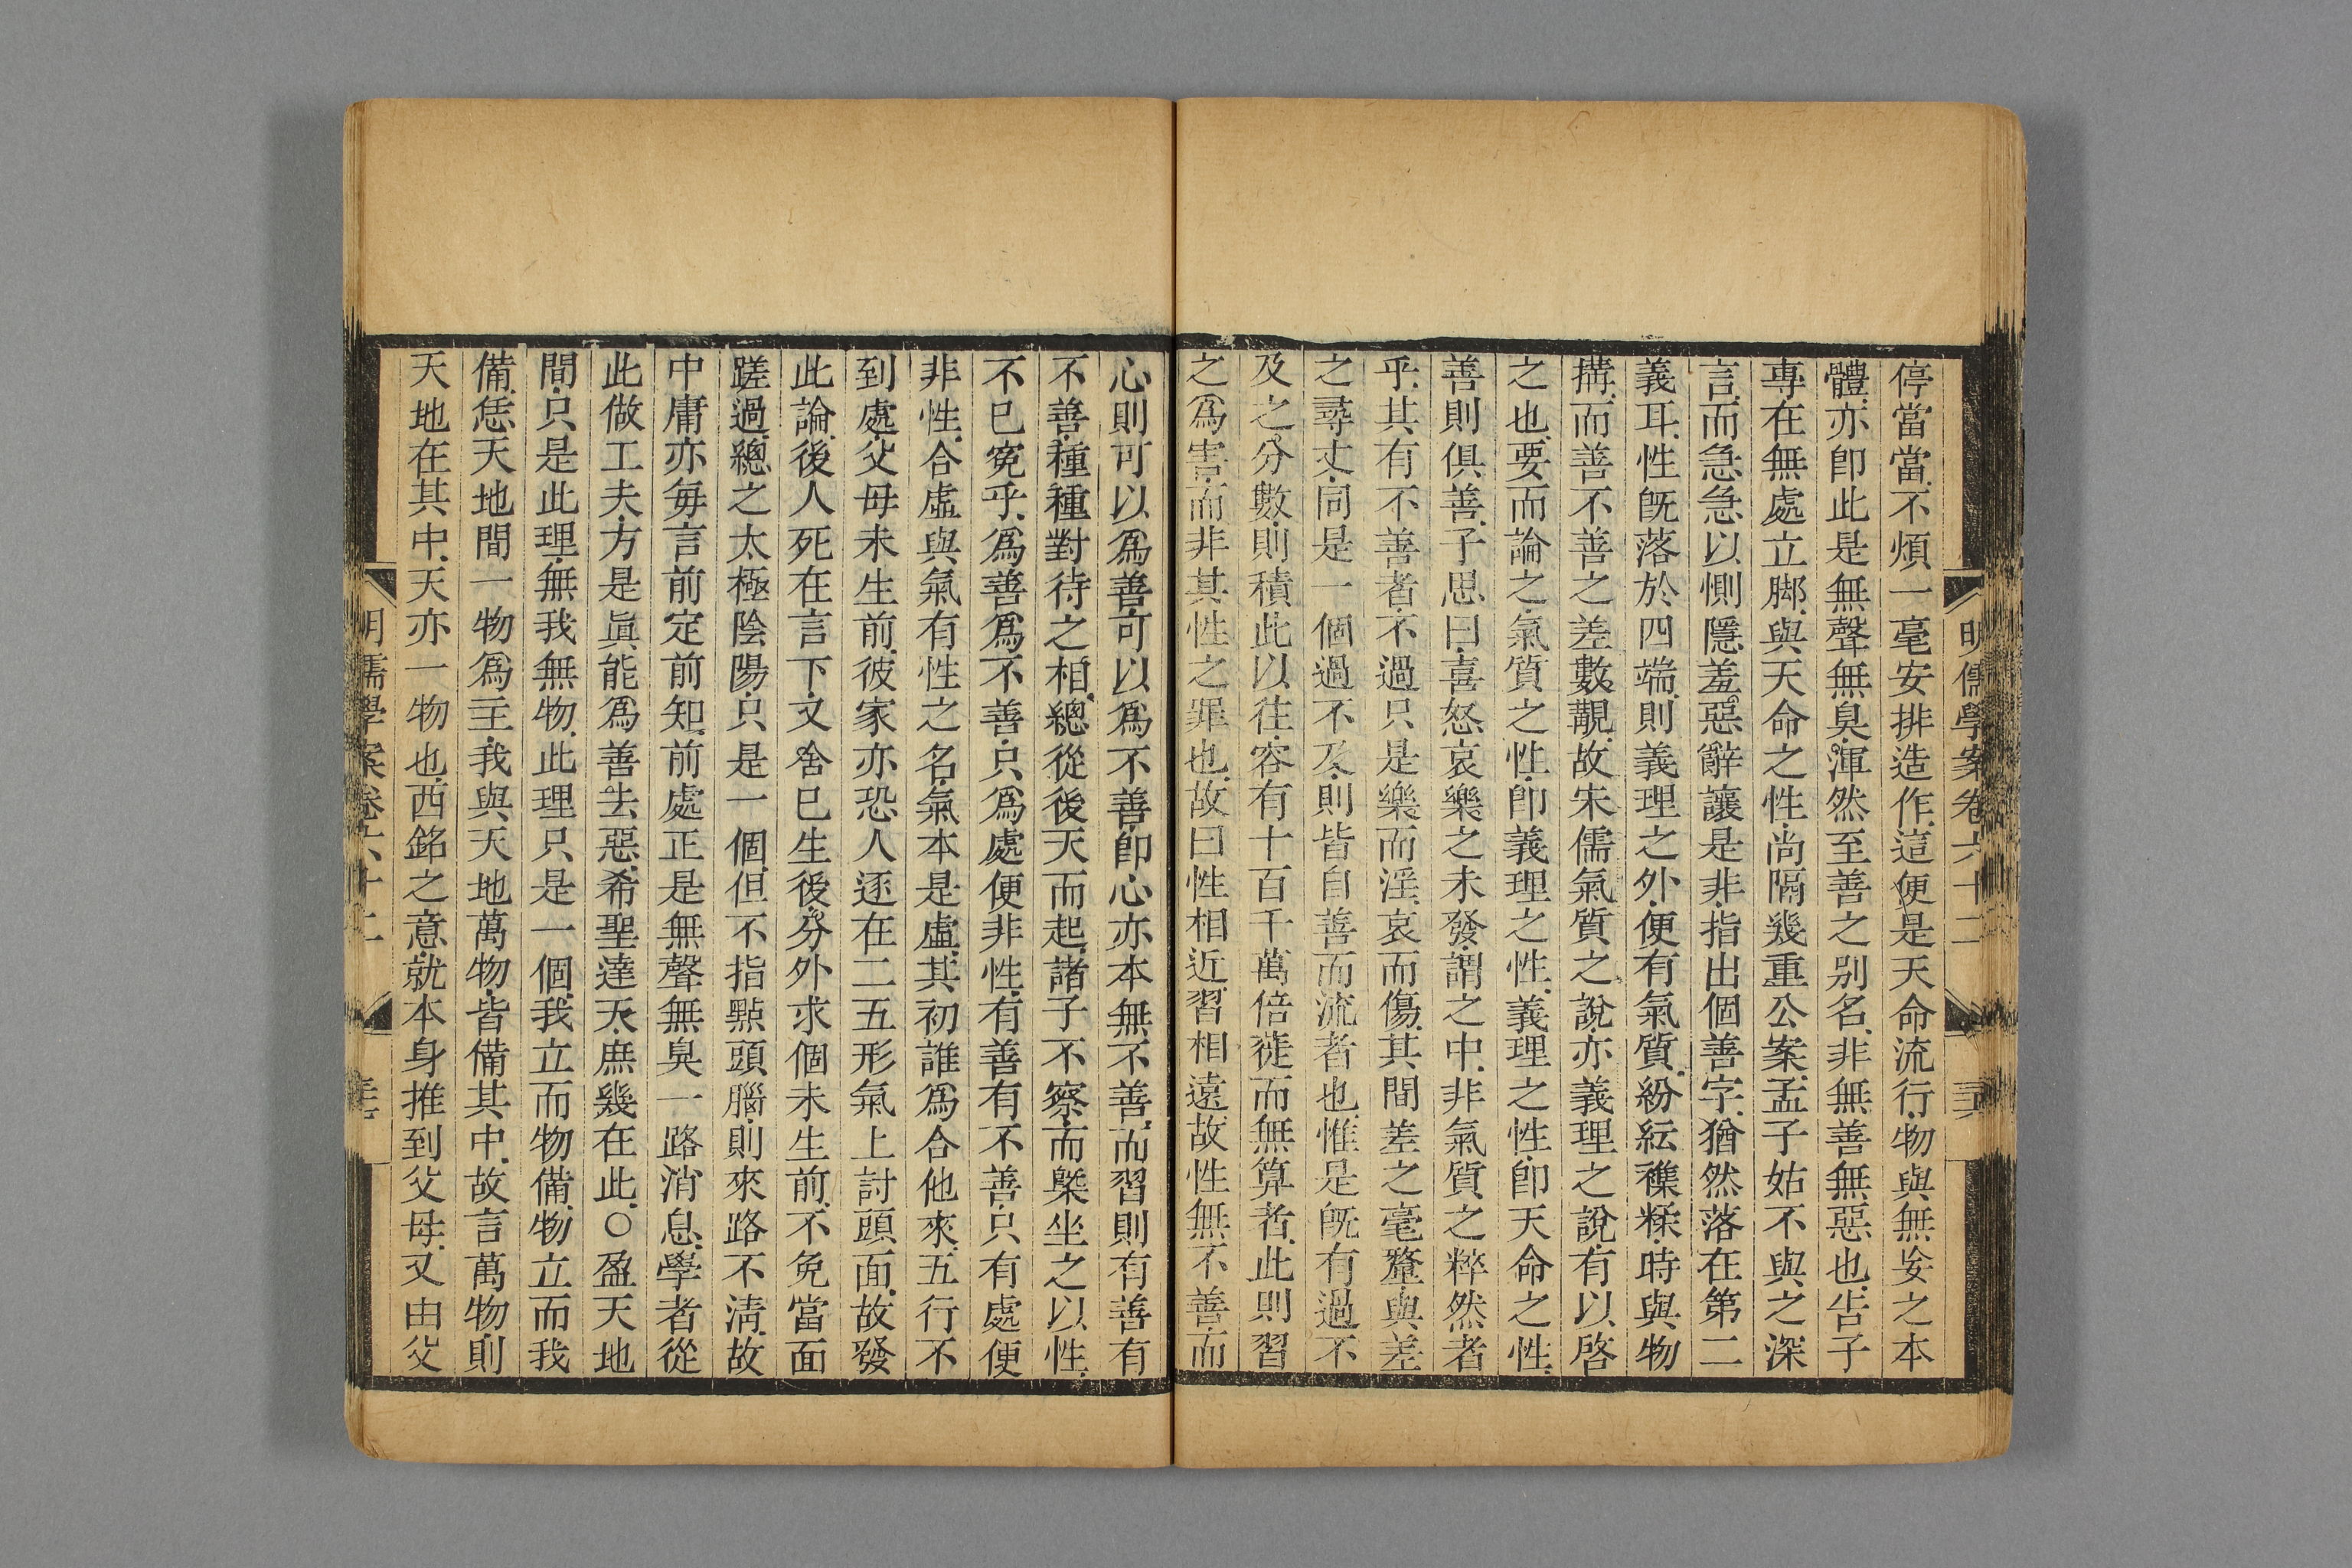 停當當不煩一毫安排造作這便是天命流行物與無妄之本
體亦卽此是無聲無臭渾然至善之別名非無善無惡也吿子
專在無處立脚與天命之性尚隔幾重公案孟子姑不與之深
言而急急以惻隱羞惡辭讓是非指出個善字猶然落在第二
義耳性旣落於四端則義理之外便有氣質紛紜襍糅時與物
搆而善不善之差數覩故宋儒氣質之說亦義理之說有以啓
之也要而論之氣質之性卽義理之性義理之性卽天命之性
善則俱善子思曰喜怒哀樂之未發謂之中非氣質之粹然者
乎其有不善者不過只是樂而淫哀而傷其間差之毫釐與差
之尋丈同是一個過不及則皆自善而流者也惟是旣有過不
及之分數則積此以往容有十百千萬倍蓰而無算者此則習
之爲害而非其性之罪也故曰性相近習相遠故性無不善而
心則可以爲善可以爲不善卽心亦本無不善而習則有善有
不善種種對待之相總從後天而起諸子不察而槩坐之以性
不已寃乎爲善爲不善只爲處便非性有善有不善只有處便
非性合虛與氣有性之名氣本是虛其初誰爲合他來五行不
到處父母未生前彼家亦恐人逐在二五形氣上討頭面故發
此論後人死在言下又舍已生後分外求個未生前不免當面
蹉過總之太極陰陽只是一個但不指點頭腦則來路不淸故
中庸亦每言前定前知前處正是無聲無臭一路消息學者從
此做工夫方是眞能爲善去惡希聖達天庶幾在此○盈天地
間只是此理無我無物此理只是一個我立而物備物立而我
備恁天地間一物爲主我與天地萬物皆備其中故言萬物則
天地在其中天亦一物也西銘之意就本身推到父母又由父
明儒學案卷六十二